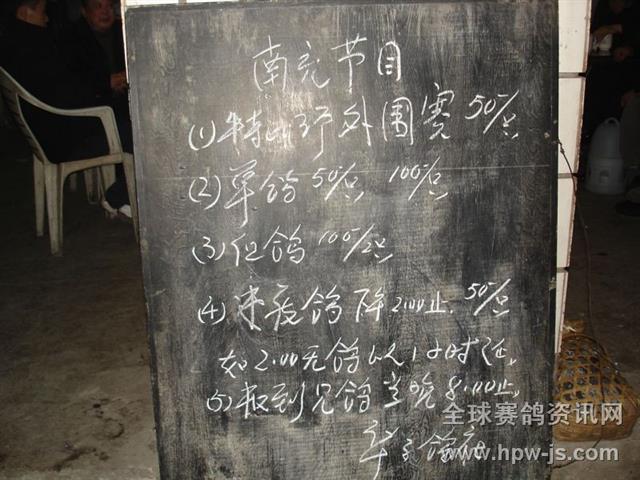 南充节目
(1) 特比环外围赛 50/只
(2) 单鸽 50/只 100/只
(3) 伍鸽 100/2只
(4) 来夜鸽 降 2:00止. 50/只
如2:00无鸽以1小时延.
(5) 报到见鸽当晚8:00止.
鸽社
全球赛鸽资讯网
www.hpw-js.com